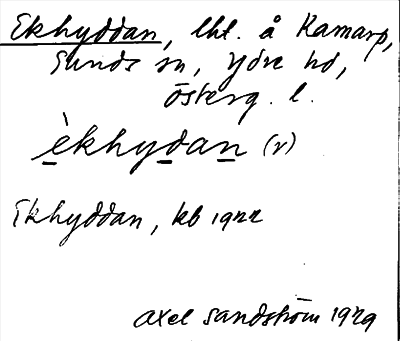 Ekhyddan, lht. å Ramarp,
Sunds sn, Ydre hd,
Österg. l.
èkhydan (r)
Ekhyddan, kb 1922
Axel Sandström 1929